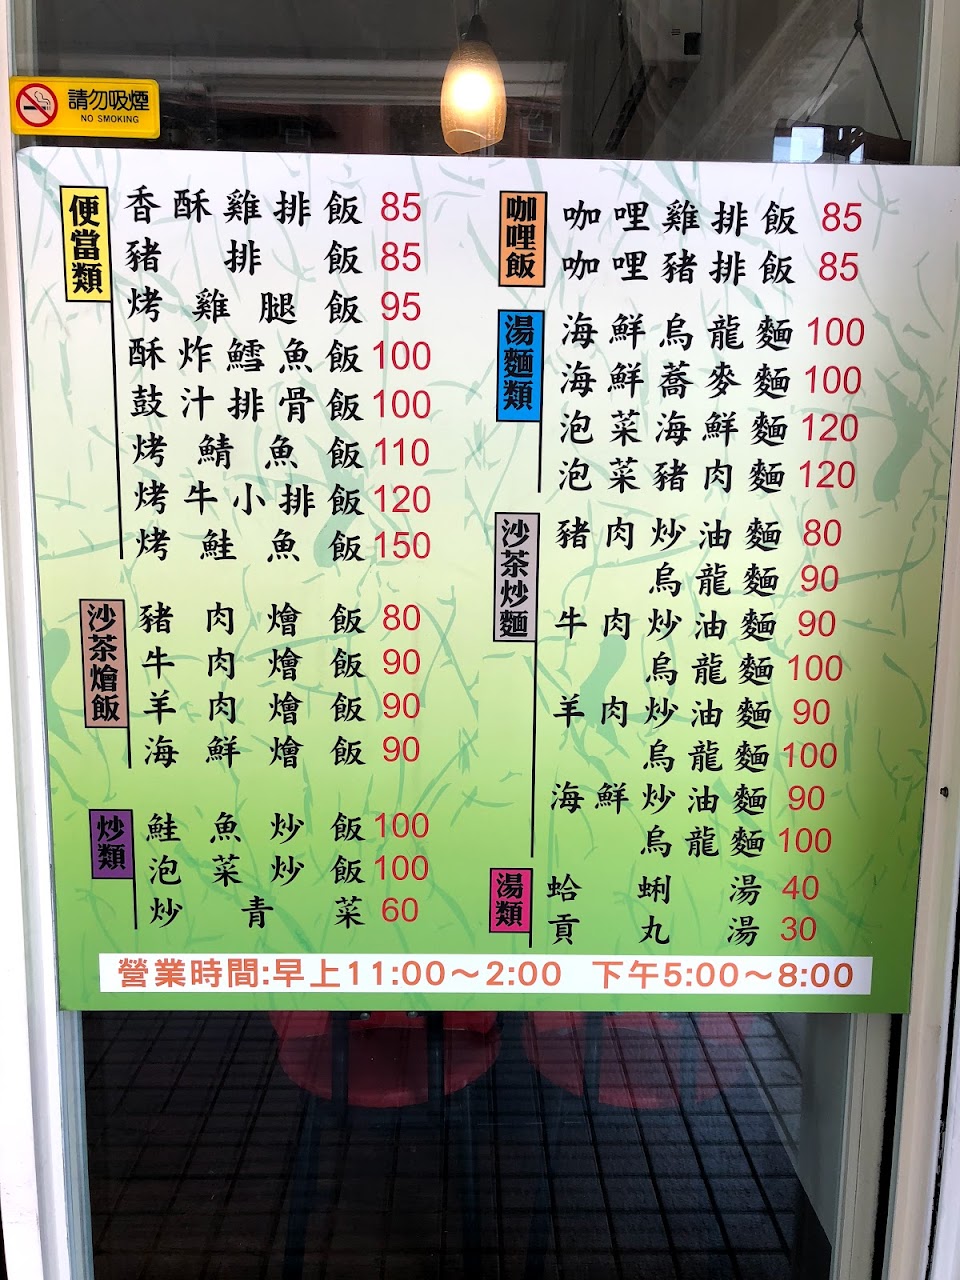 請勿吸煙
NO SMOKING
便當類
香酥雞排飯 85
豬排飯 85
烤雞腿飯 95
酥炸鱈魚飯 100
鼓汁排骨飯 100
烤鯖魚飯 110
烤牛小排飯 120
烤鮭魚飯 150
沙茶燴飯
豬肉燴飯 80
牛肉燴飯 90
羊肉燴飯 90
海鮮燴飯 90
炒類
鮭魚炒飯 100
泡菜炒飯 100
炒青菜 60
咖哩飯
咖哩雞排飯 85
咖哩豬排飯 85
湯麵類
海鮮烏龍麵 100
海鮮蕎麥麵 100
泡菜海鮮麵 120
泡菜豬肉麵 120
沙茶炒麵
豬肉炒油麵 80
烏龍麵 90
牛肉炒油麵 90
烏龍麵 100
羊肉炒油麵 90
烏龍麵 100
海鮮炒油麵 90
烏龍麵 100
湯類
蛤蜊湯 40
貢丸湯 30
營業時間:早上11:00～2:00 下午5:00～8:00